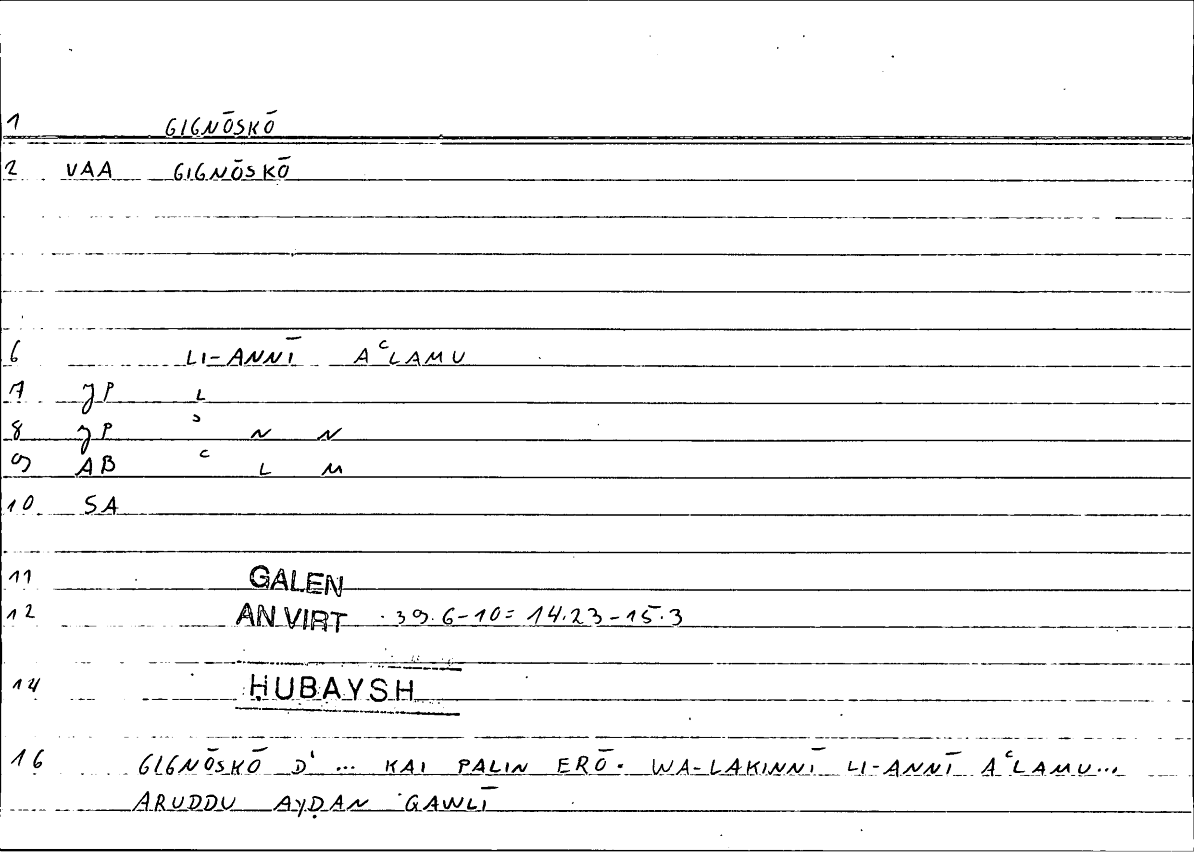 1 GIGNŌSKŌ
2 VAA GIGNŌSKŌ
6 LI-ANNĪ AʿLAMU
7 JP L
8 JP ʾ N N
9 AB ʿ L M
10 SA
11 GALEN
12 AN VIRT 39.6-10= 14.23-15.3
14 ḤUBAYSH
16 GIGNŌSKŌ D' ... KAI PALIN ERŌ. WA-LAKINNĪ LI-ANNĪ AʿLAMU...
ARUDDU AYḌAN QAWLĪ